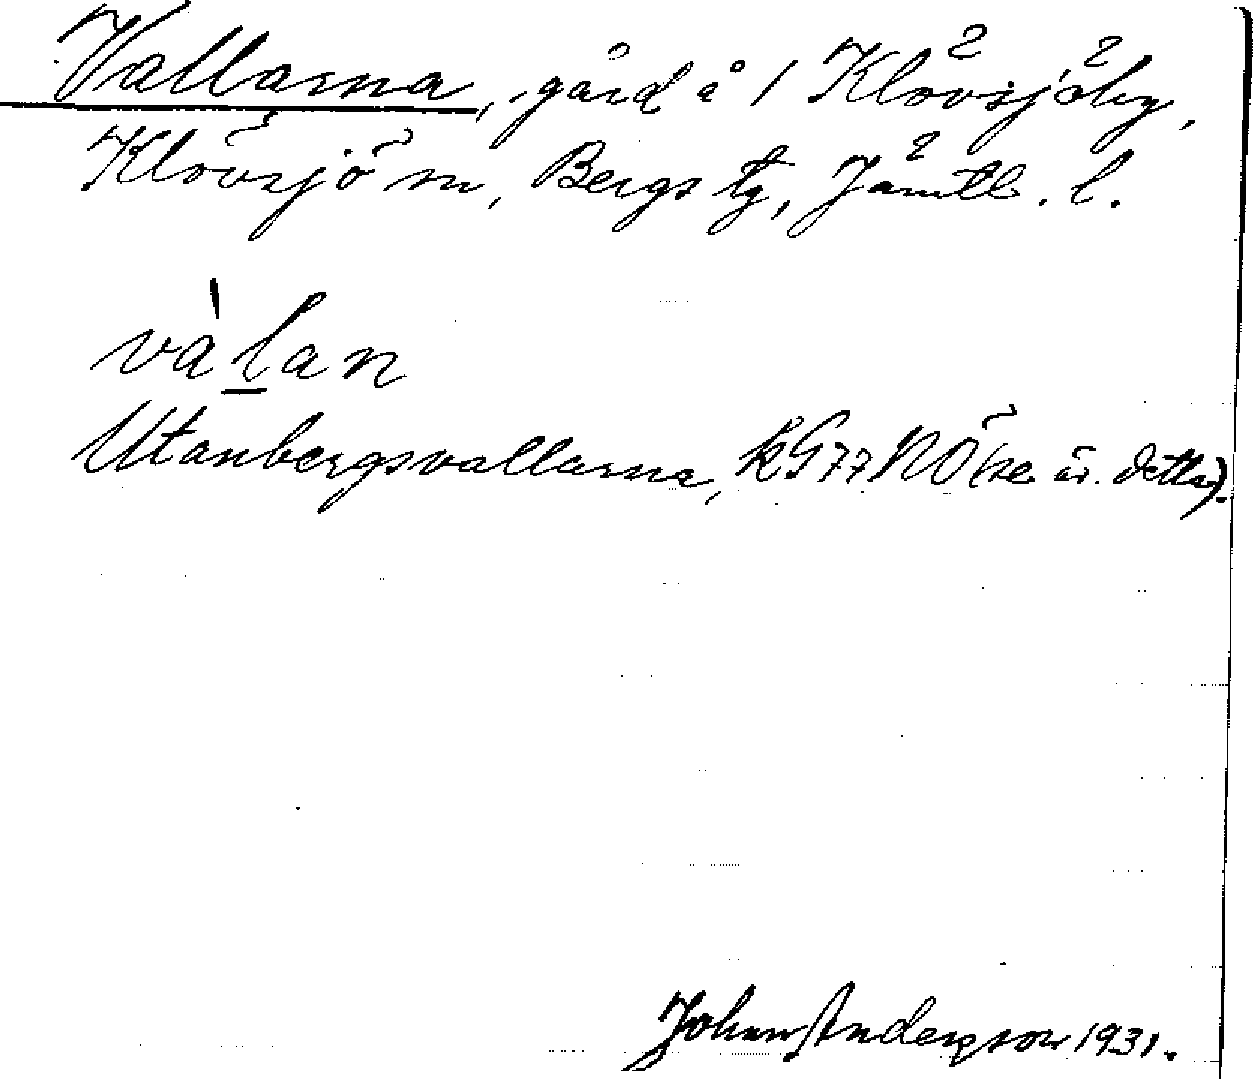 Vallarna, gård å 1 Klövsjöby,
Klövsjö sn, Bergs tg, Jämtl. l.
vàlan
Utanbergsvallarna, kG77NÖ (se äv. detta).
Johan Anderson 1931.